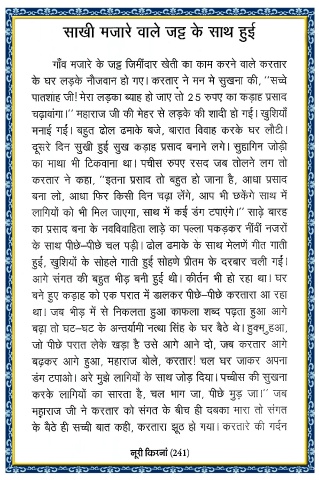 साखी मजारे वाले जट्ट के साथ हुई
गाँव मजारे के जट्ट जिमींदार खेती का काम करने वाले करतार
के घर लड़के नौजवान हो गए। करतार ने मन मे सुखना की, "सच्चे
पातशाह जी! मेरा लड़का ब्याह हो जाए तो 25 रुपए का कड़ाह प्रसाद
चढ़ावांगा।" महाराज जी की मेहर से लड़के की शादी हो गई। खुशियाँ
मनाई गईं। बहुत ढोल ढमाके बजे, बारात विवाह करके घर लौटी।
दूसरे दिन सुखी हुई सुख कड़ाह प्रसाद बनाने लगे। सुहागिन जोड़ी
का माथा भी टिकवाना था। पचीस रुपए रसद जब तोलने लग तो
करतार ने कहा, "इतना प्रसाद तो बहुत हो जाना है, आधा प्रसाद
बना लो, आधा फिर किसी दिन चढ़ा लेंगे, आप भी छकेंगे साथ में
लागियों को भी मिल जाएगा, साथ में कई डंग टपाएंगे।" साढ़े बारह
का प्रसाद बना के नवविवाहिता लाड़े का पल्ला पकड़कर नींवीं नजरों
के साथ पीछे–पीछे चल पड़ी। ढोल ढमाके के साथ मेलणें गीत गाती
हुई, खुशियों के सोहले गाती हुई सोहणे प्रीतम के दरबार चली गई।
आगे संगत की बहुत भीड़ बनी हुई थी। कीर्तन भी हो रहा था। घर
बने हुए कड़ाह को एक परात में डालकर पीछे–पीछे करतारा आ रहा
था। जब भीड़ में से निकलता हुआ काफला शब्द पढ़ता हुआ आगे
बढ़ा तो घट–घट के अन्तर्यामी नत्था सिंह के घर बैठे थे। हुक्म हुआ,
जो पीछे परात लेके खड़ा है उसे आगे आने दो, जब करतार आगे
बढ़कर आगे हुआ, महाराज बोले, करतारा! चल घर जाकर अपना
डंग टपाओ। अरे मुझे लागियों के साथ जोड़ दिया। पच्चीस की सुखना
करके लागियों का सारता है, चल भाग जा, पीछे मुड़ जा।" जब
महाराज जी ने करतार को संगत के बीच ही दबका मारा तो संगत
के बैठे ही सच्ची बात कही, करतारा झूठा हो गया। करतारे की गर्दन
नूरी किरनां (241)